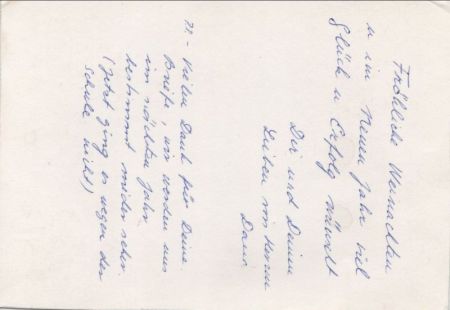 Fröhliche Weinachten
u im Neuen Jahr viel
Glück u Erfolg wünscht
Dir und Deinen
Lieben von Herzen
P.S. - Vielen Dank für Deine
Briefe, wir werden uns
im nächsten Jahr
bestimmt wieder sehn.
(jetzt ging es wegen der
Schule nicht!)